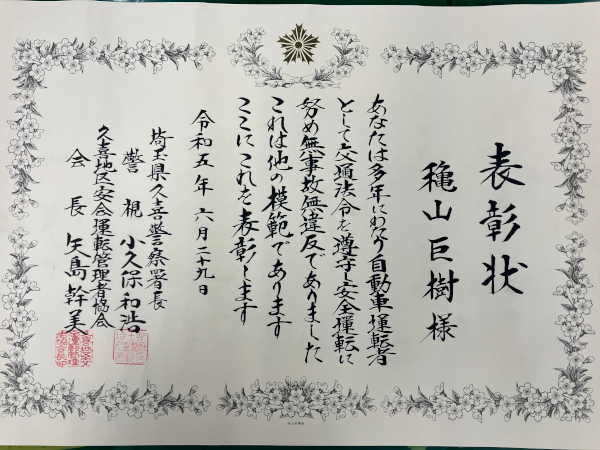 表彰状
穐山巨樹様
あなたは多年にわたり自動車運転者
として交通法令を遵守し安全運転に
努め無事故無違反でありました
これは他の模範であります
ここにこれを表彰します
令和五年六月二十九日
埼玉県久喜警察署長
警視 小久保和浩
久喜地区安全運転管理者協会
会長 矢島幹美